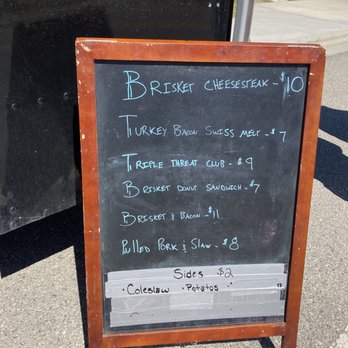 Brisket Cheesesteak - $10
Turkey Bacon Swiss Melt - $7
Triple Threat Club - $9
Brisket Donut Sandwich - $7
Brisket & Bacon - $11
Pulled Pork & Slaw - $8
Sides $2
· Coleslaw · Potatos